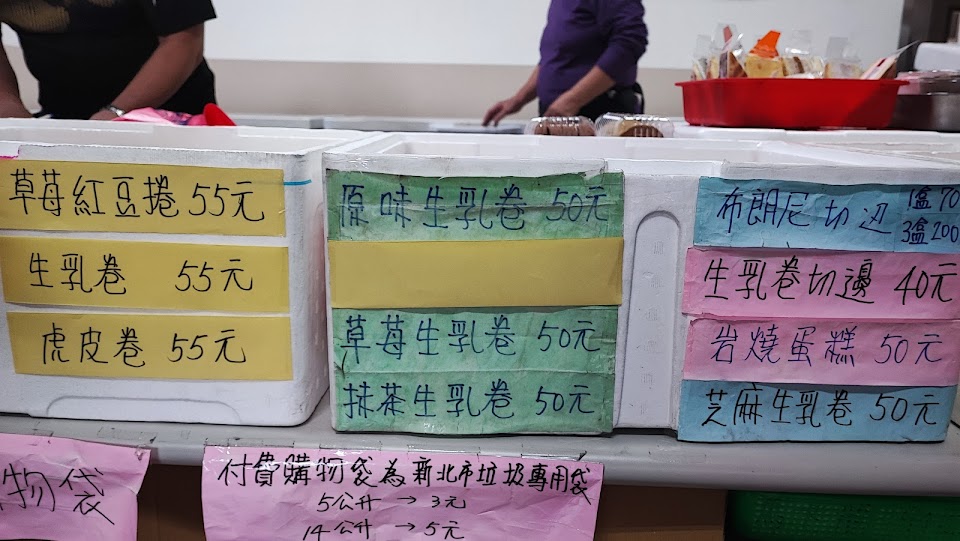 草莓紅豆捲 55元
生乳卷 55元
虎皮卷 55元
原味生乳卷 50元
草莓生乳卷 50元
抹茶生乳卷 50元
布朗尼切边 1盒70
3盒200
生乳卷切邊 40元
岩燒蛋糕 50元
芝麻生乳卷 50元
物袋
付費購物袋為新北市垃圾專用袋
5公升 → 3元
14公升 → 5元